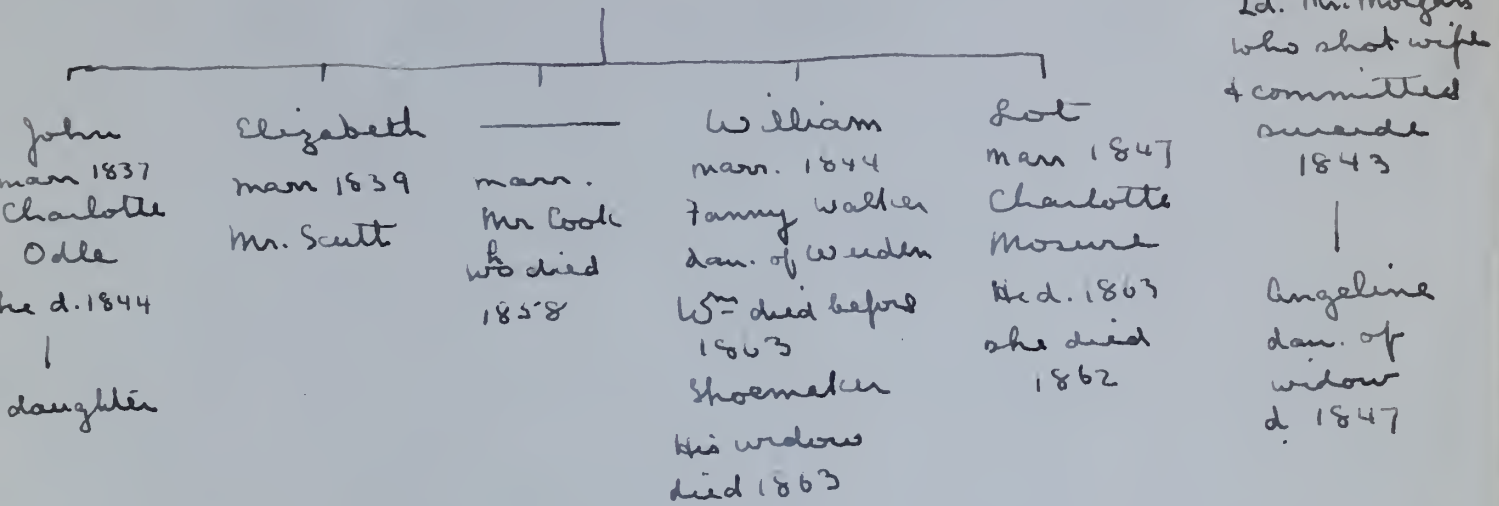 John
marr 1837
Charlotte
Odle
he d. 1844
daughter
Elizabeth
marr 1839
Mr. Scutt
marr.
Mr Cook
who died
1858
William
marr. 1844
Fanny Walker
dau. of
Wm died before
1863
Shoemaker
His widow
died 1863
Lot
marr 1847
Charlotte
Mosure
He d. 1863
she died
1862
2d. Mr. Morgans
who shot wife
& committed
suicide
1843
Angeline
dau. of
widow
d 1847